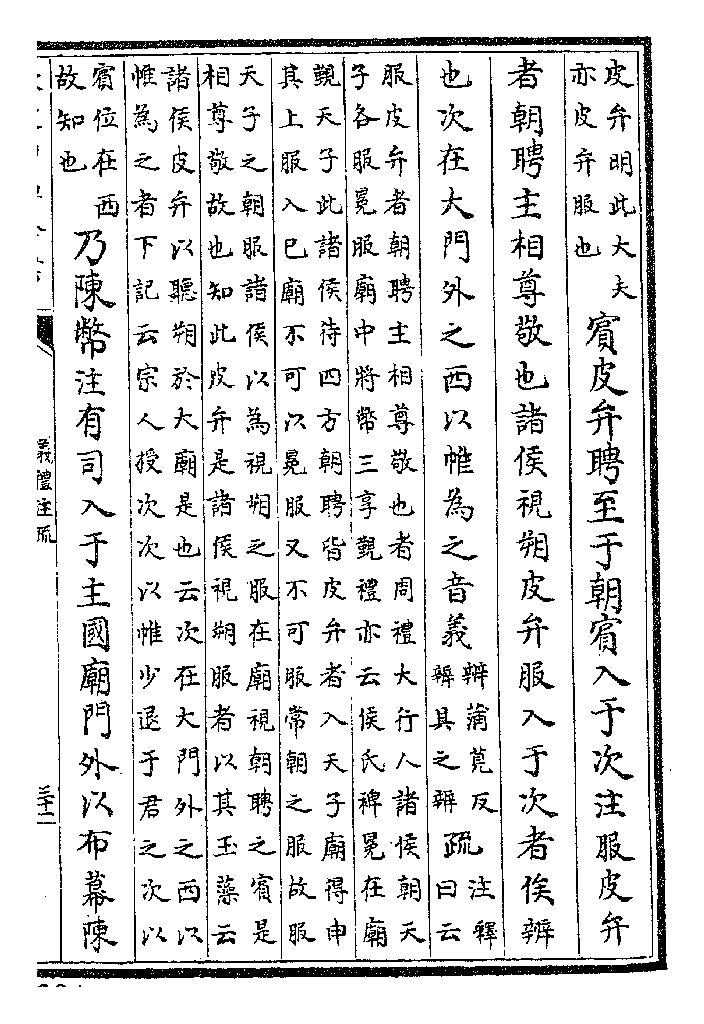 皮弁明此大夫
亦皮弁服也
賓皮弁聘至于朝賓入于次注服皮弁
者朝聘主相尊敬也諸侯視朔皮弁服入于次者俟辦
也次在大門外之西以帷為之音義
辦蒲莧反
辦具之辦
疏
注釋
曰云
服皮弁者朝聘主相尊敬也者周禮大行人諸侯朝天
子各服冕服廟中將幣三享覲禮亦云侯氏裨冕在廟
覲天子此諸侯待四方朝聘皆皮弁者入天子廟得申
其上服入已廟不可以冕服又不可服常朝之服故服
天子之朝服諸侯以為視朔之服在廟視朝聘之賓是
相尊敬故也知此皮弁是諸侯視朔服者以其玉藻云
諸侯皮弁以聽朔於大廟是也云次在大門外之西以
帷為之者下記云宗人授次次以帷少退于君之次以
賓位在西
故知也
乃陳幣注有司入于主國廟門外以布幕陳
儀禮注疏
三十二